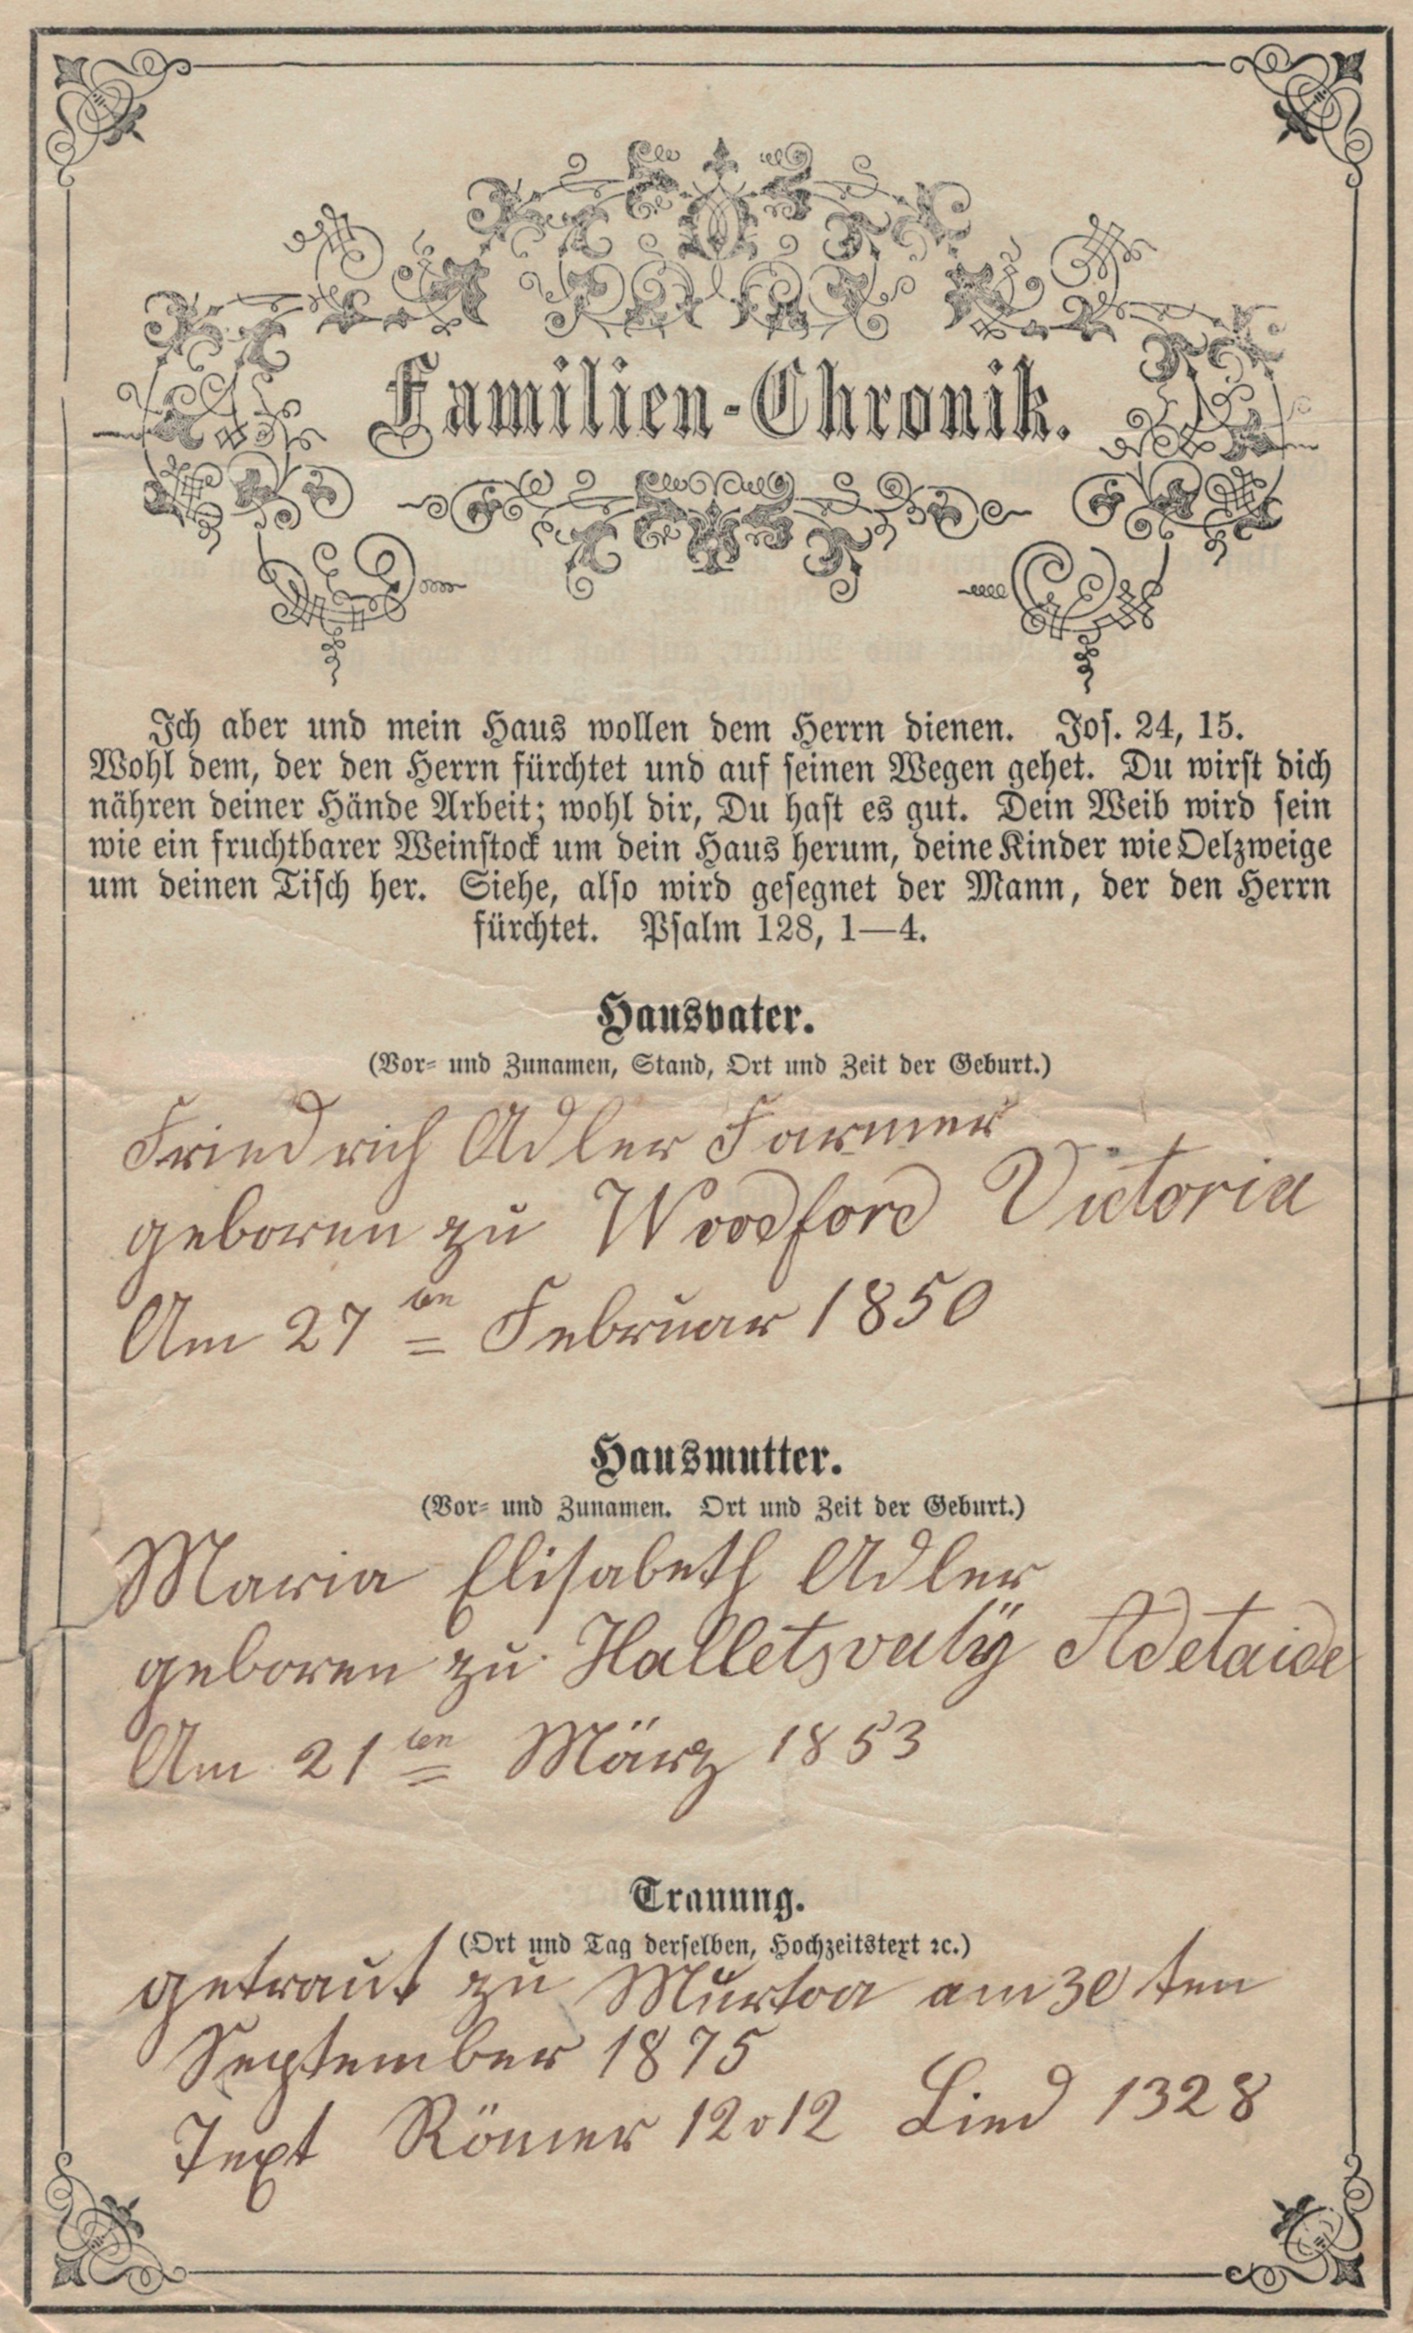 Familien-Chronik.
Ich aber und mein Haus wollen dem Herrn dienen. Jos. 24, 15.
Wohl dem, der den Herrn fürchtet und auf seinen Wegen gehet. Du wirst dich
nähren deiner Hände Arbeit; wohl dir, Du hast es gut. Dein Weib wird sein
wie ein fruchtbarer Weinstock um dein Haus herum, deine Kinder wie Oelzweige
um deinen Tisch her. Siehe, also wird gesegnet der Mann, der den Herrn
fürchtet. Psalm 128, 1—4.
Hausvater.
(Vor- und Zunamen, Stand, Ort und Zeit der Geburt.)
Friedrich Adler Farmer
geboren zu Woodford Victoria
Am 27ten Februar 1850
Hausmutter.
(Vor- und Zunamen. Ort und Zeit der Geburt.)
Maria Elisabeth Adler
geboren zu Adelaide
Am 21ten März 1853
Trauung.
(Ort und Tag derselben, Hochzeitstext ꝛc.)
getraut zu Murtoa am 30ten
September 1875
Text Römer 12 v 12 Lied 1328